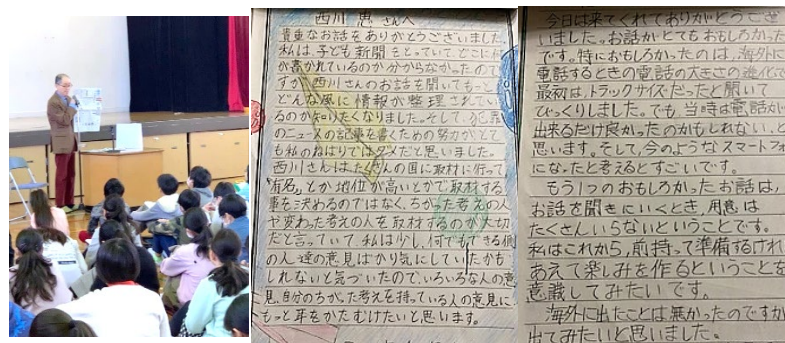 西川 恵さんへ
貴重なお話をありがとうございました。
私は、子ども新聞をとっていて、どこに何
が書かれているのか分からなかったので
すが、西川さんのお話を聞いてもっと
どんな風に情報が整理されてい
るのか知りたくなりました。そして、犯罪
のニュースの記事を書くための努力がとて
も私のねばりではダメだと思いました。
西川さんはたくさんの国に取材に行って
"有名"とか地位が高いとかで取材する
事を決めるのではなく、ちがった考えの人
や変わった考えの人を取材するのが大切
だと言っていて、私は少し、何でもできる他
の人達の意見ばかり気にしていたかも
しれないと気づいたので、いろいろな人の意
見、自分のちがった考えを持っている人の意見に
もっと耳をかたむけたいと思います。
今日は来てくれてありがとうござ
いました。お話がとてもおもしろかった
です。特におもしろかったのは、海外に
電話するときの電話の大きさの進化で
最初は、トラックサイズだったと聞いて
びっくりしました。でも、当時は電話が
出来るだけ良かったのかもしれない、と
思います。そして、今のようなスマートフォ
になったと考えるとすごいです。
もう1つのおもしろかったお話は、
お話を聞きにいくとき、用意は
たくさんいらないということです。
私はこれから、前持って準備するけれ
あえて楽しみを作るということを
意識してみたいです。
海外に出たことは無かったのですが
出てみたいと思いました。